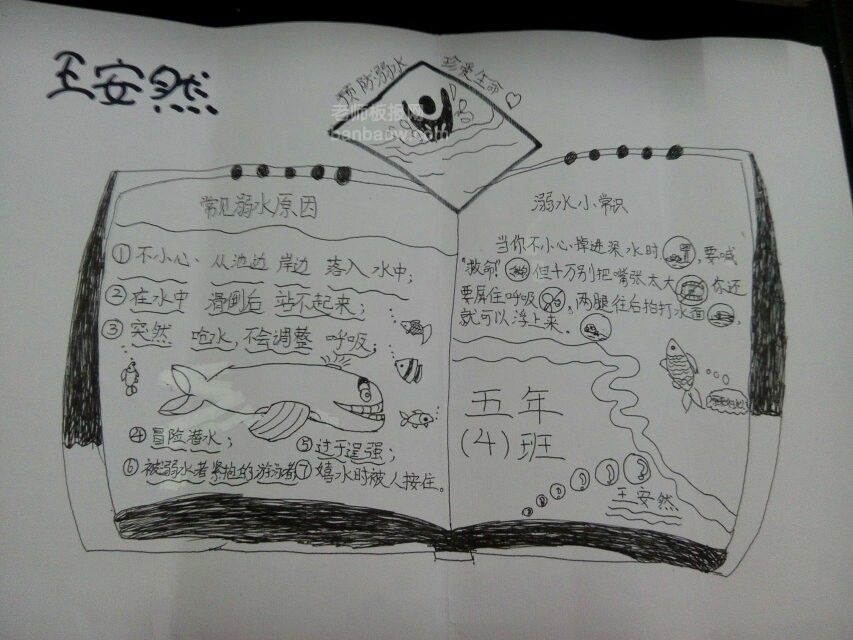 王安然
预防溺水
珍爱生命
老师板报网
banbaow.com
常见溺水原因
①不小心、从池边 岸边 落入 水中;
②在水中 滑倒后 站不起来;
③突然 呛水,不会调整 呼吸;
④冒险潜水;
⑤过于逞强;
⑥被溺水者紧抱的游泳者
⑦嬉水时被人按住。
溺水小常识
当你不小心掉进深水时,要喊
"救命!"但千万别把嘴张太大,你还
要屏住呼吸,两腿往后拍打水面,
就可以浮上来。
五年
(4)班
王安然